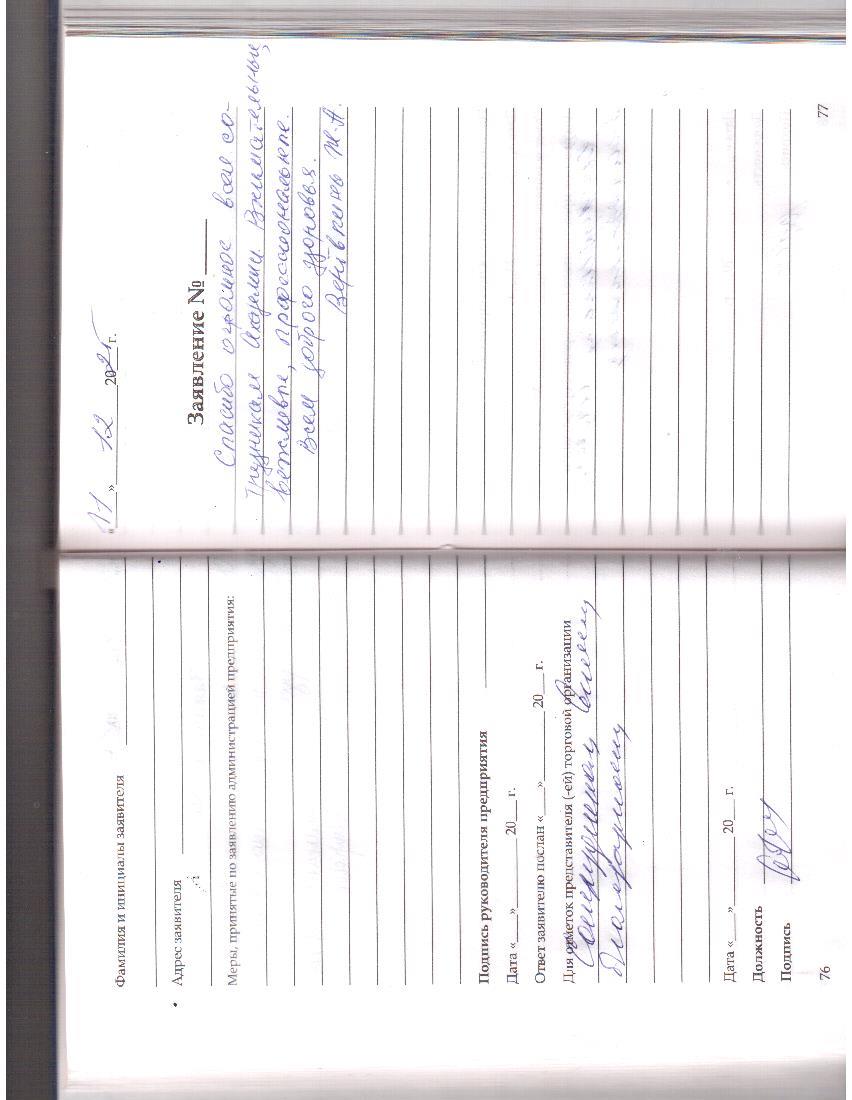 Фамилия и инициалы заявителя
Адрес заявителя
Меры, принятые по заявлению администрацией предприятия:
Подпись руководителя предприятия
Дата «___» ________ 20___ г.
Ответ заявителю послан «___» ________ 20___ г.
Для отметок представителя (-ей) торговой организации
Сотрудникам
Дата «___» ________ 20___ г.
Должность
Подпись
76
«11» 12 2025 г.
Заявление № ____
Спасибо огромное всем со-
трудникам Академии Внимательные,
вежливые, профессиональные.
Всем доброго здоровья.
77